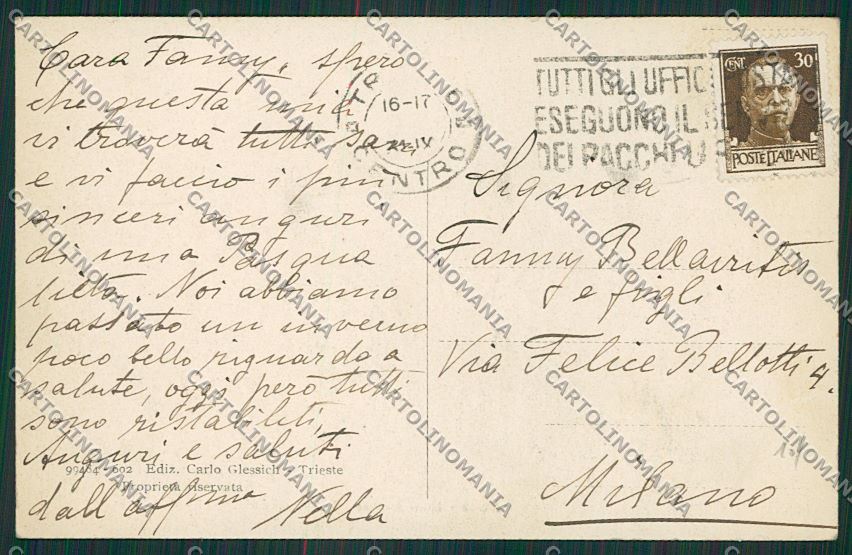 Cara Fanny, spero
che questa mia
vi troverà tutti sani
e vi faccio i più
sinceri auguri
di una Pasqua
lieta. Noi abbiamo
passato un inverno
poco bello riguardo a
salute, oggi però tutti
sono ristabiliti,
Auguri e saluti
dall'affma Nella
99464 - 602 Ediz. Carlo Glessich - Trieste
Proprietà riservata
16-17
IV
CENTRO
TUTTI GLI UFFICI
ESEGUONO IL
DEI PACCHI
CENT. 30
POSTE ITALIANE
Signora
Fanny
e figli
Via Felice Bellotti 4.
Milano
CARTOLINOMANIA